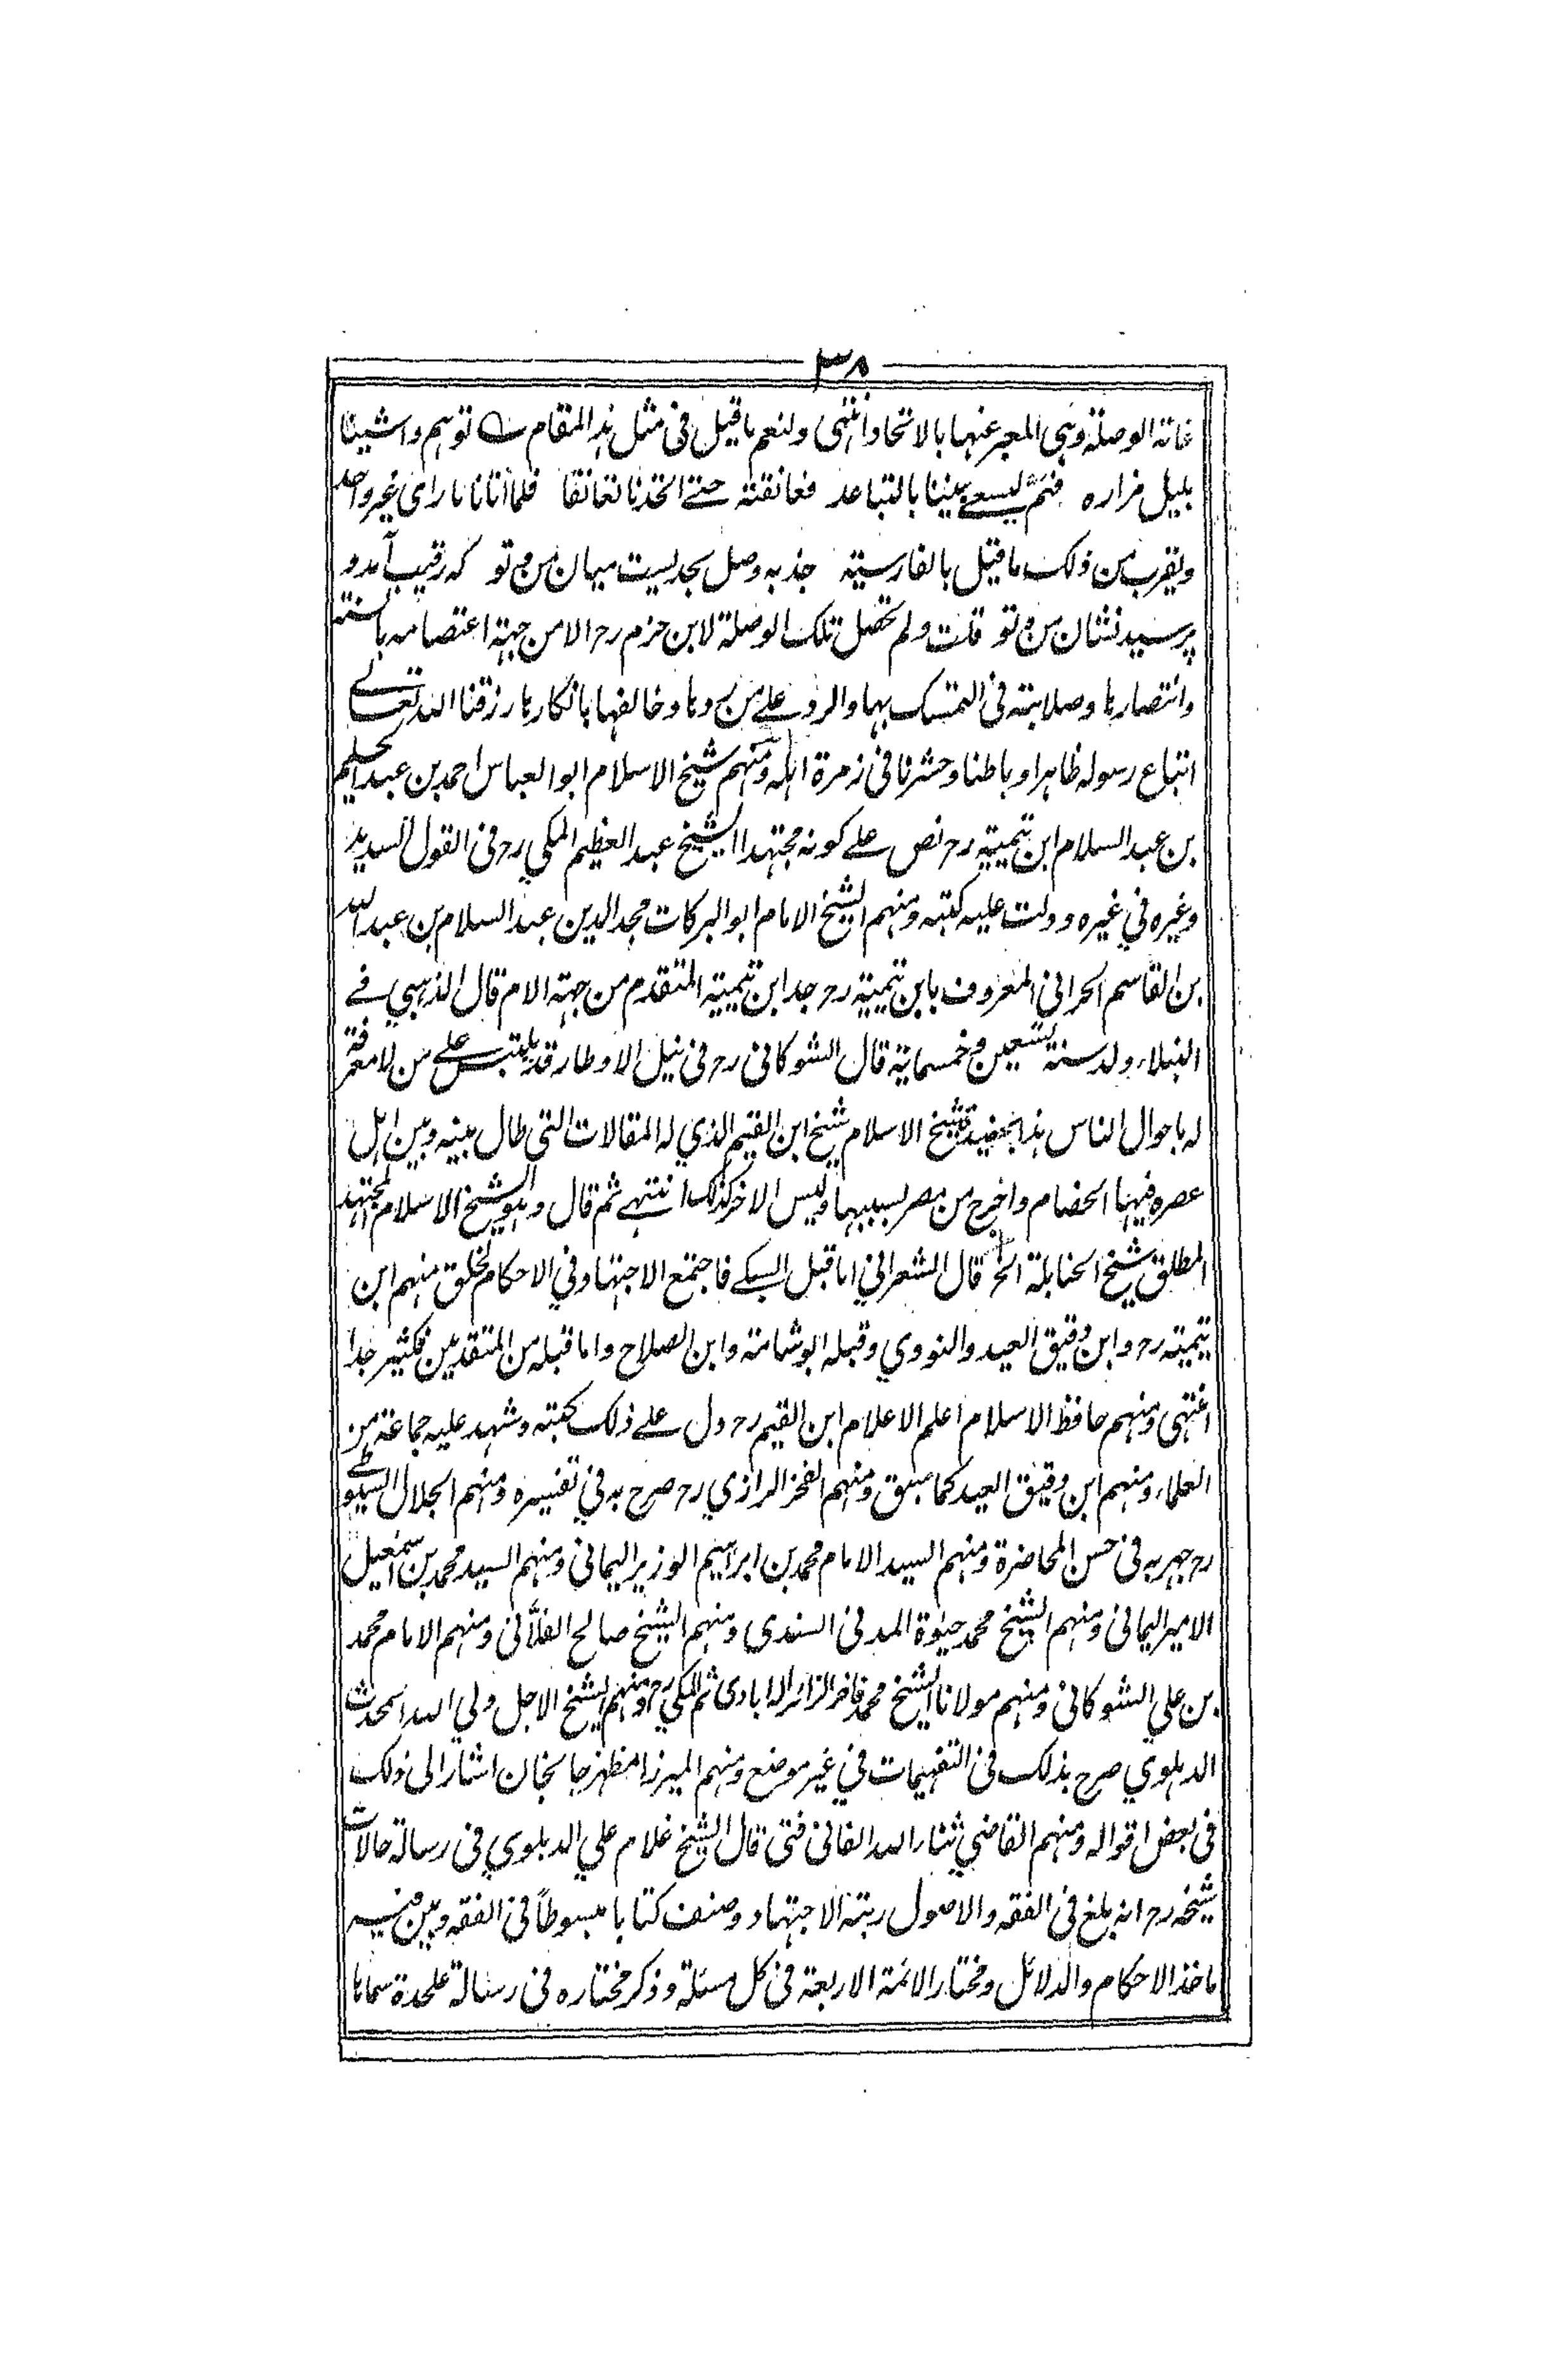 ٣٨
غاية الوصلة وهي المعبر عنها بالاتحاد انتهى ولنعم ما قيل في مثل هذا المقام توهم واشينا
بليل مزاره فهم ليسعى بيننا بالتباعد فعانقته حتى اتحدنا تعانقا فلما اتانا ما رأى غير واحد
ويقرب من ذلك ما قيل بالفارسية جذبه وصل بحديست ميان من و تو كه رقيب آمد و
پرسيد نشان من و تو قلت ولم تحصل تلك الوصلة لابن حزم رح الا من جهة اعتصامه بالسنة
وانتصارها وصلابته في التمسك بها والرد على من ردها وخالفها بانكارها رزقنا الله تعالى
اتباع رسوله ظاهرا وباطنا وحشرنا في زمرة اهله ومنهم شيخ الاسلام ابو العباس احمد بن عبد الحليم
بن عبد السلام ابن تيمية رح نص على كونه مجتهدا الشيخ عبد العظيم المكي رح في القول السديد
وغيره في غيره ودلت عليه كتبه ومنهم الشيخ الامام ابو البركات مجد الدين عبد السلام بن عبد الله
بن القاسم الحراني المعروف بابن تيمية رح جد ابن تيمية المتقدم من جهة الام قال الذهبي في
النبلاء ولد سنة تسعين وخمسماية قال الشوكاني رح في نيل الاوطار قد يلتبس على من لا معرفة
له باحوال الناس هذا بحفيده شيخ الاسلام شيخ ابن القيم الذي له المقالات التي طال بينه وبين اهل
عصره فيها الخصام واخرج من مصر بسببها وليس الاخر كذلك انتهى ثم قال وهو الشيخ الاسلام المجتهد
المطلق شيخ الحنابلة الخ قال الشعراني اما قبل السبكي فاجتمع الاجتهاد في الاحكام لخلق منهم ابن
تيمية رح وابن دقيق العيد والنووي وقبله ابو شامة وابن الصلاح واما قبله من المتقدمين فكثير جدا
انتهى ومنهم حافظ الاسلام اعلم الاعلام ابن القيم رح دل على ذلك كتبه وشهد عليه جماعة من
العلماء ومنهم ابن دقيق العيد كما سبق ومنهم الفخر الرازي رح صرح به في تفسيره ومنهم الجلال السيوطي
رح جهر به في حسن المحاضرة ومنهم السيد الامام محمد بن ابراهيم الوزير اليماني ومنهم السيد محمد بن اسمعيل
الامير اليماني ومنهم الشيخ محمد حيوة المدني السندي ومنهم الشيخ صالح الفلاني ومنهم الامام محمد
بن علي الشوكاني ومنهم مولانا الشيخ محمد فاخر الزائر الابادى ثم المكي رح ومنهم الشيخ الاجل ولي الله المحدث
الدهلوي صرح بذلك في التفهيمات في غير موضع ومنهم الميرزا مظهر جانجان اشار الى ذلك
في بعض اقواله ومنهم القاضي ثناء الله الفاني فتي قال الشيخ غلام علي الدهلوي في رسالة حالات
شيخه رح انه بلغ في الفقه والاصول رتبة الاجتهاد وصنف كتابا مبسوطاً في الفقه وبين فيه
ماخذ الاحكام والدلائل ومختار الائمة الاربعة في كل مسئلة وذكر مختاره في رسالة علحدة سماها